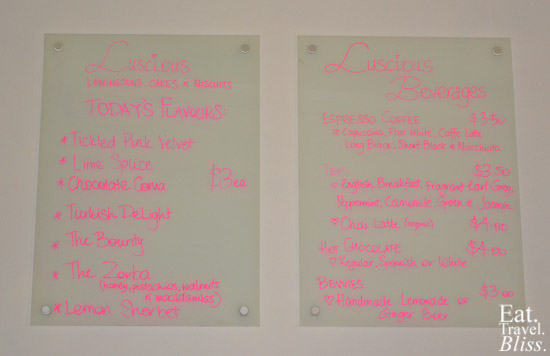 Luscious
LAMINGTONS, CAKES & BISCUITS
TODAY'S FLAVOURS!
* Tickled Pink Velvet
* Lime Splice
* Chocolate Coma
$3 ea
* Turkish Delight
* The Bounty
* The Zorba
(honey, pistachios, walnuts
& macadamias)
* Lemon Sherbet
Luscious
Beverages
ESPRESSO COFFEE $3.50
Cappuccino, Flat White, Caffe Latte
Long Black, Short Black & Macchiato
TEAS $3.50
English Breakfast, Fragrant Earl Grey,
Peppermint, Camomile, Green & Jasmine
* Chai Latte (organic) $4.00
HOT CHOCOLATE $4.00
Regular, Spanish or White
BEVVIES
Handmade Lemonade or $3.00
Ginger Beer
Eat.
Travel.
Bliss.